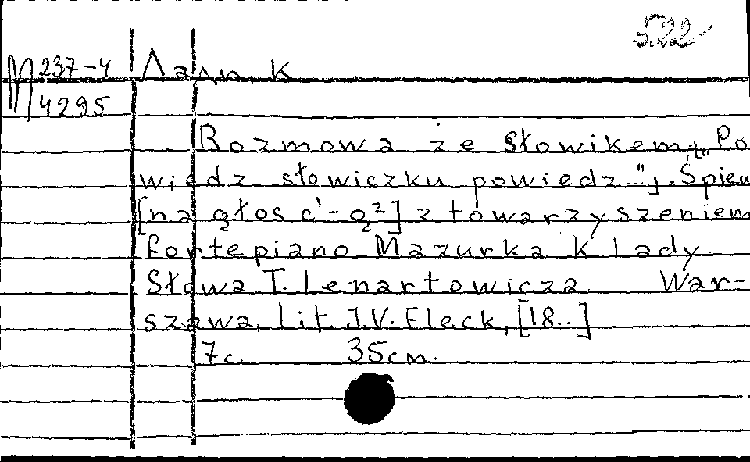 5.22
М 237-4 Лады, К
4295
Rozmowa ze słowikem „Po
wiedz słowiczku powiedz"; Śpiew
[na głos c¹-g²] z towarzyszeniem
fortepiano Mazurka K. Lady
Słowa T. Lenartowicza War-
szawa, Lit. J.V. Fleck, [18..]
7c. 35cm.